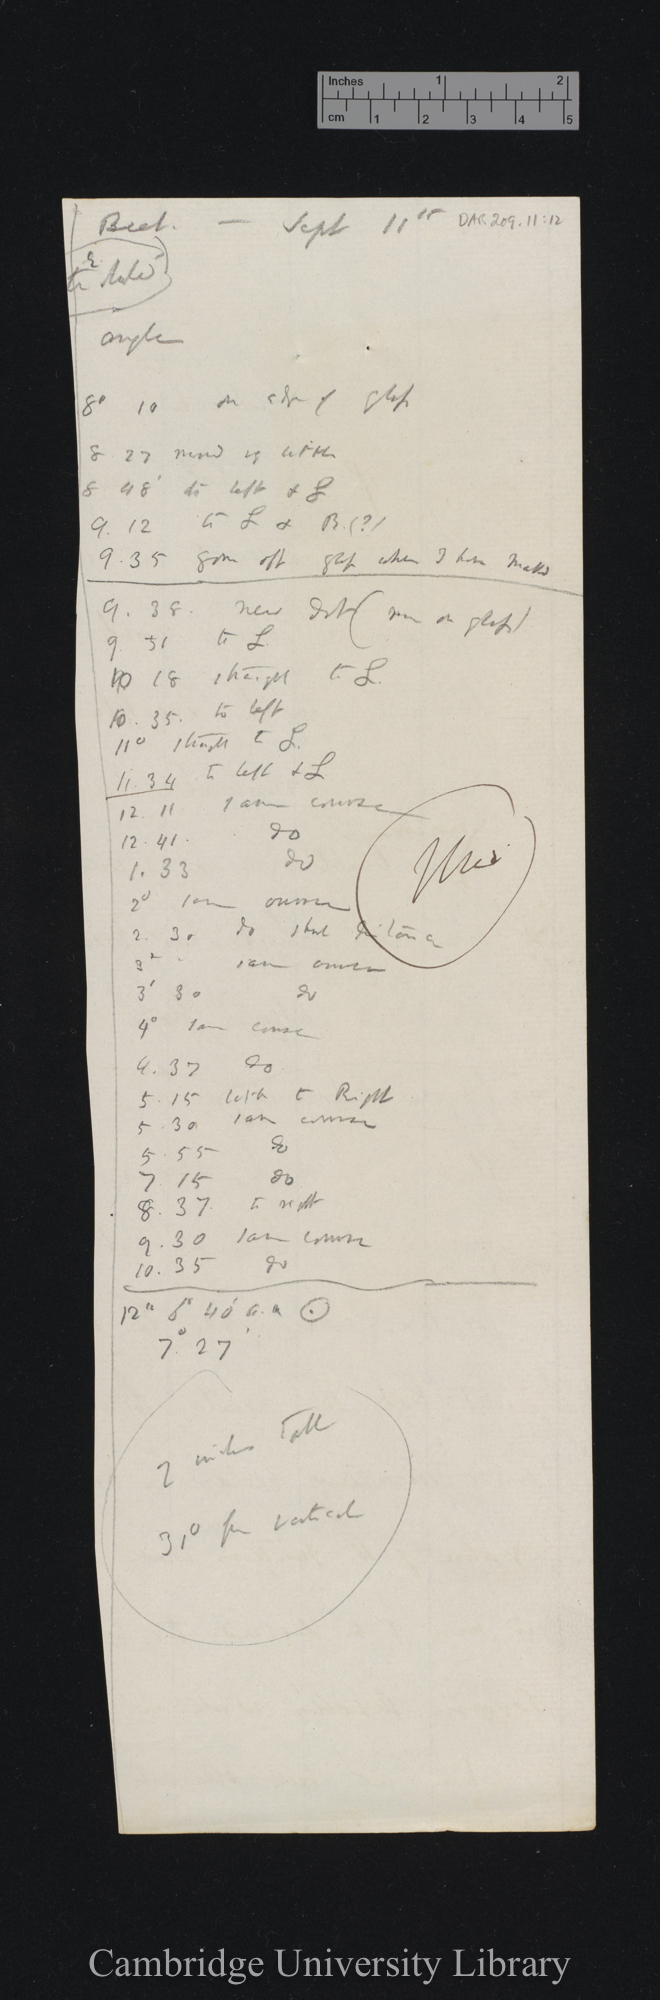 Inches 1 2
cm 1 2 3 4 5
Beet. — Sept 11th DAR.209.11:12
angle
8° 10 on edge of glass
8 27 moved up little
8 48' to left & L
9. 12 to L & B.(?)
9. 35 gone off glass when I have made
9. 38. new dot (now on glass)
9 51 to L.
10 18 straight to L.
10. 35. to left
11° straight to L.
11. 34 to left & L
12. 11 same course
12. 41. do
1. 33 do
2° same course
2. 30 do short distance
3° same course
3' 30 do
4° same course
4. 37 do
5. 15 little to Right
5. 30 same course
5. 55 do
7. 15 do
8. 37 to right
9. 30 same course
10. 35 do
12th 6° 40' a.m ⊙
7° 27'
2 inches Tall
31° from vertical
Cambridge University Library